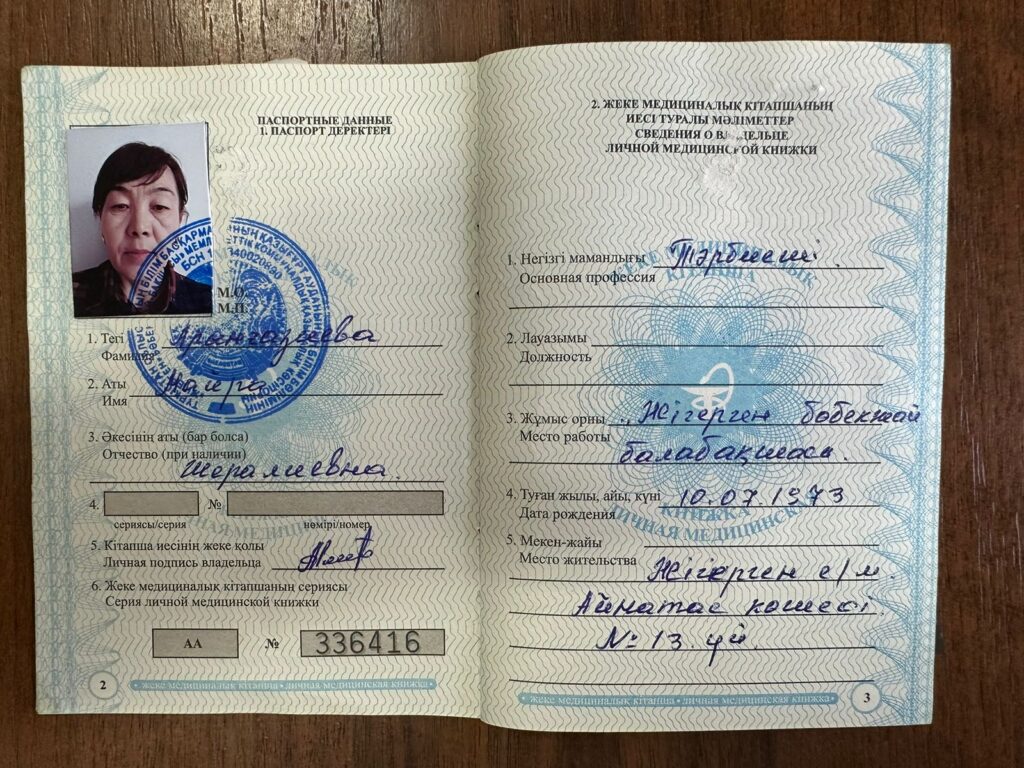 ПАСПОРТНЫЕ ДАННЫЕ
1. ПАСПОРТ ДЕРЕКТЕРІ
М.О.
М.П.
1. Тегі
Фамилия
2. Аты Наира
Имя
3. Әкесінің аты (бар болса)
Отчество (при наличии)
Шералиевна
4. №
сериясы/серия нөмірі/номер
5. Кітапша иесінің жеке қолы
Личная подпись владельца
6. Жеке медициналық кітапшаның сериясы
Серия личной медицинской книжки
АА № 336416
2
жеке медициналық кітапша • личная медицинская книжка
2. ЖЕКЕ МЕДИЦИНАЛЫҚ КІТАПШАНЫҢ
ИЕСІ ТУРАЛЫ МӘЛІМЕТТЕР
СВЕДЕНИЯ О ВЛАДЕЛЬЦЕ
ЛИЧНОЙ МЕДИЦИНСКОЙ КНИЖКИ
1. Негізгі мамандығы Тәрбиеші
Основная профессия
2. Лауазымы
Должность
3. Жұмыс орны „Жігерген бөбекжай
Место работы балабақшасы.
4. Туған жылы, айы, күні 10.07.1973
Дата рождения
5. Мекен-жайы
Место жительства Жігерген е/м.
Айнатас көшесі
№ 13 үй
жеке медициналық кітапша • личная медицинская книжка
3